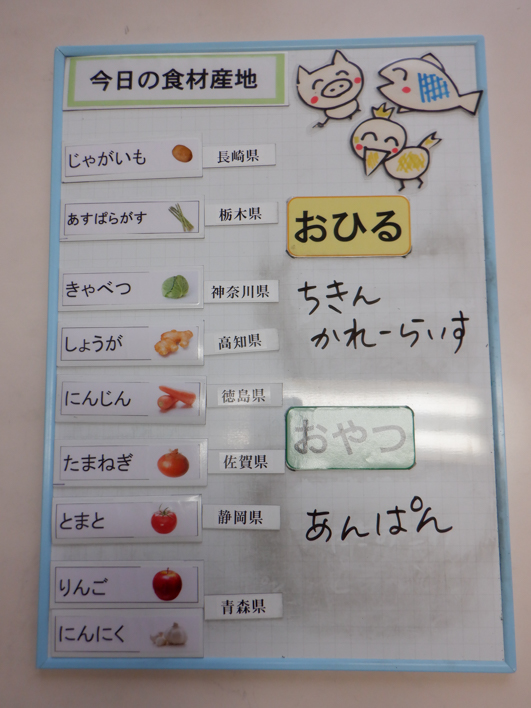 今日の食材産地
じゃがいも 長崎県
あすぱらがす 栃木県
きゃべつ 神奈川県
しょうが 高知県
にんじん 徳島県
たまねぎ 佐賀県
とまと 静岡県
りんご
青森県
にんにく
おひる
ちきん
かれーらいす
おやつ
あんぱん